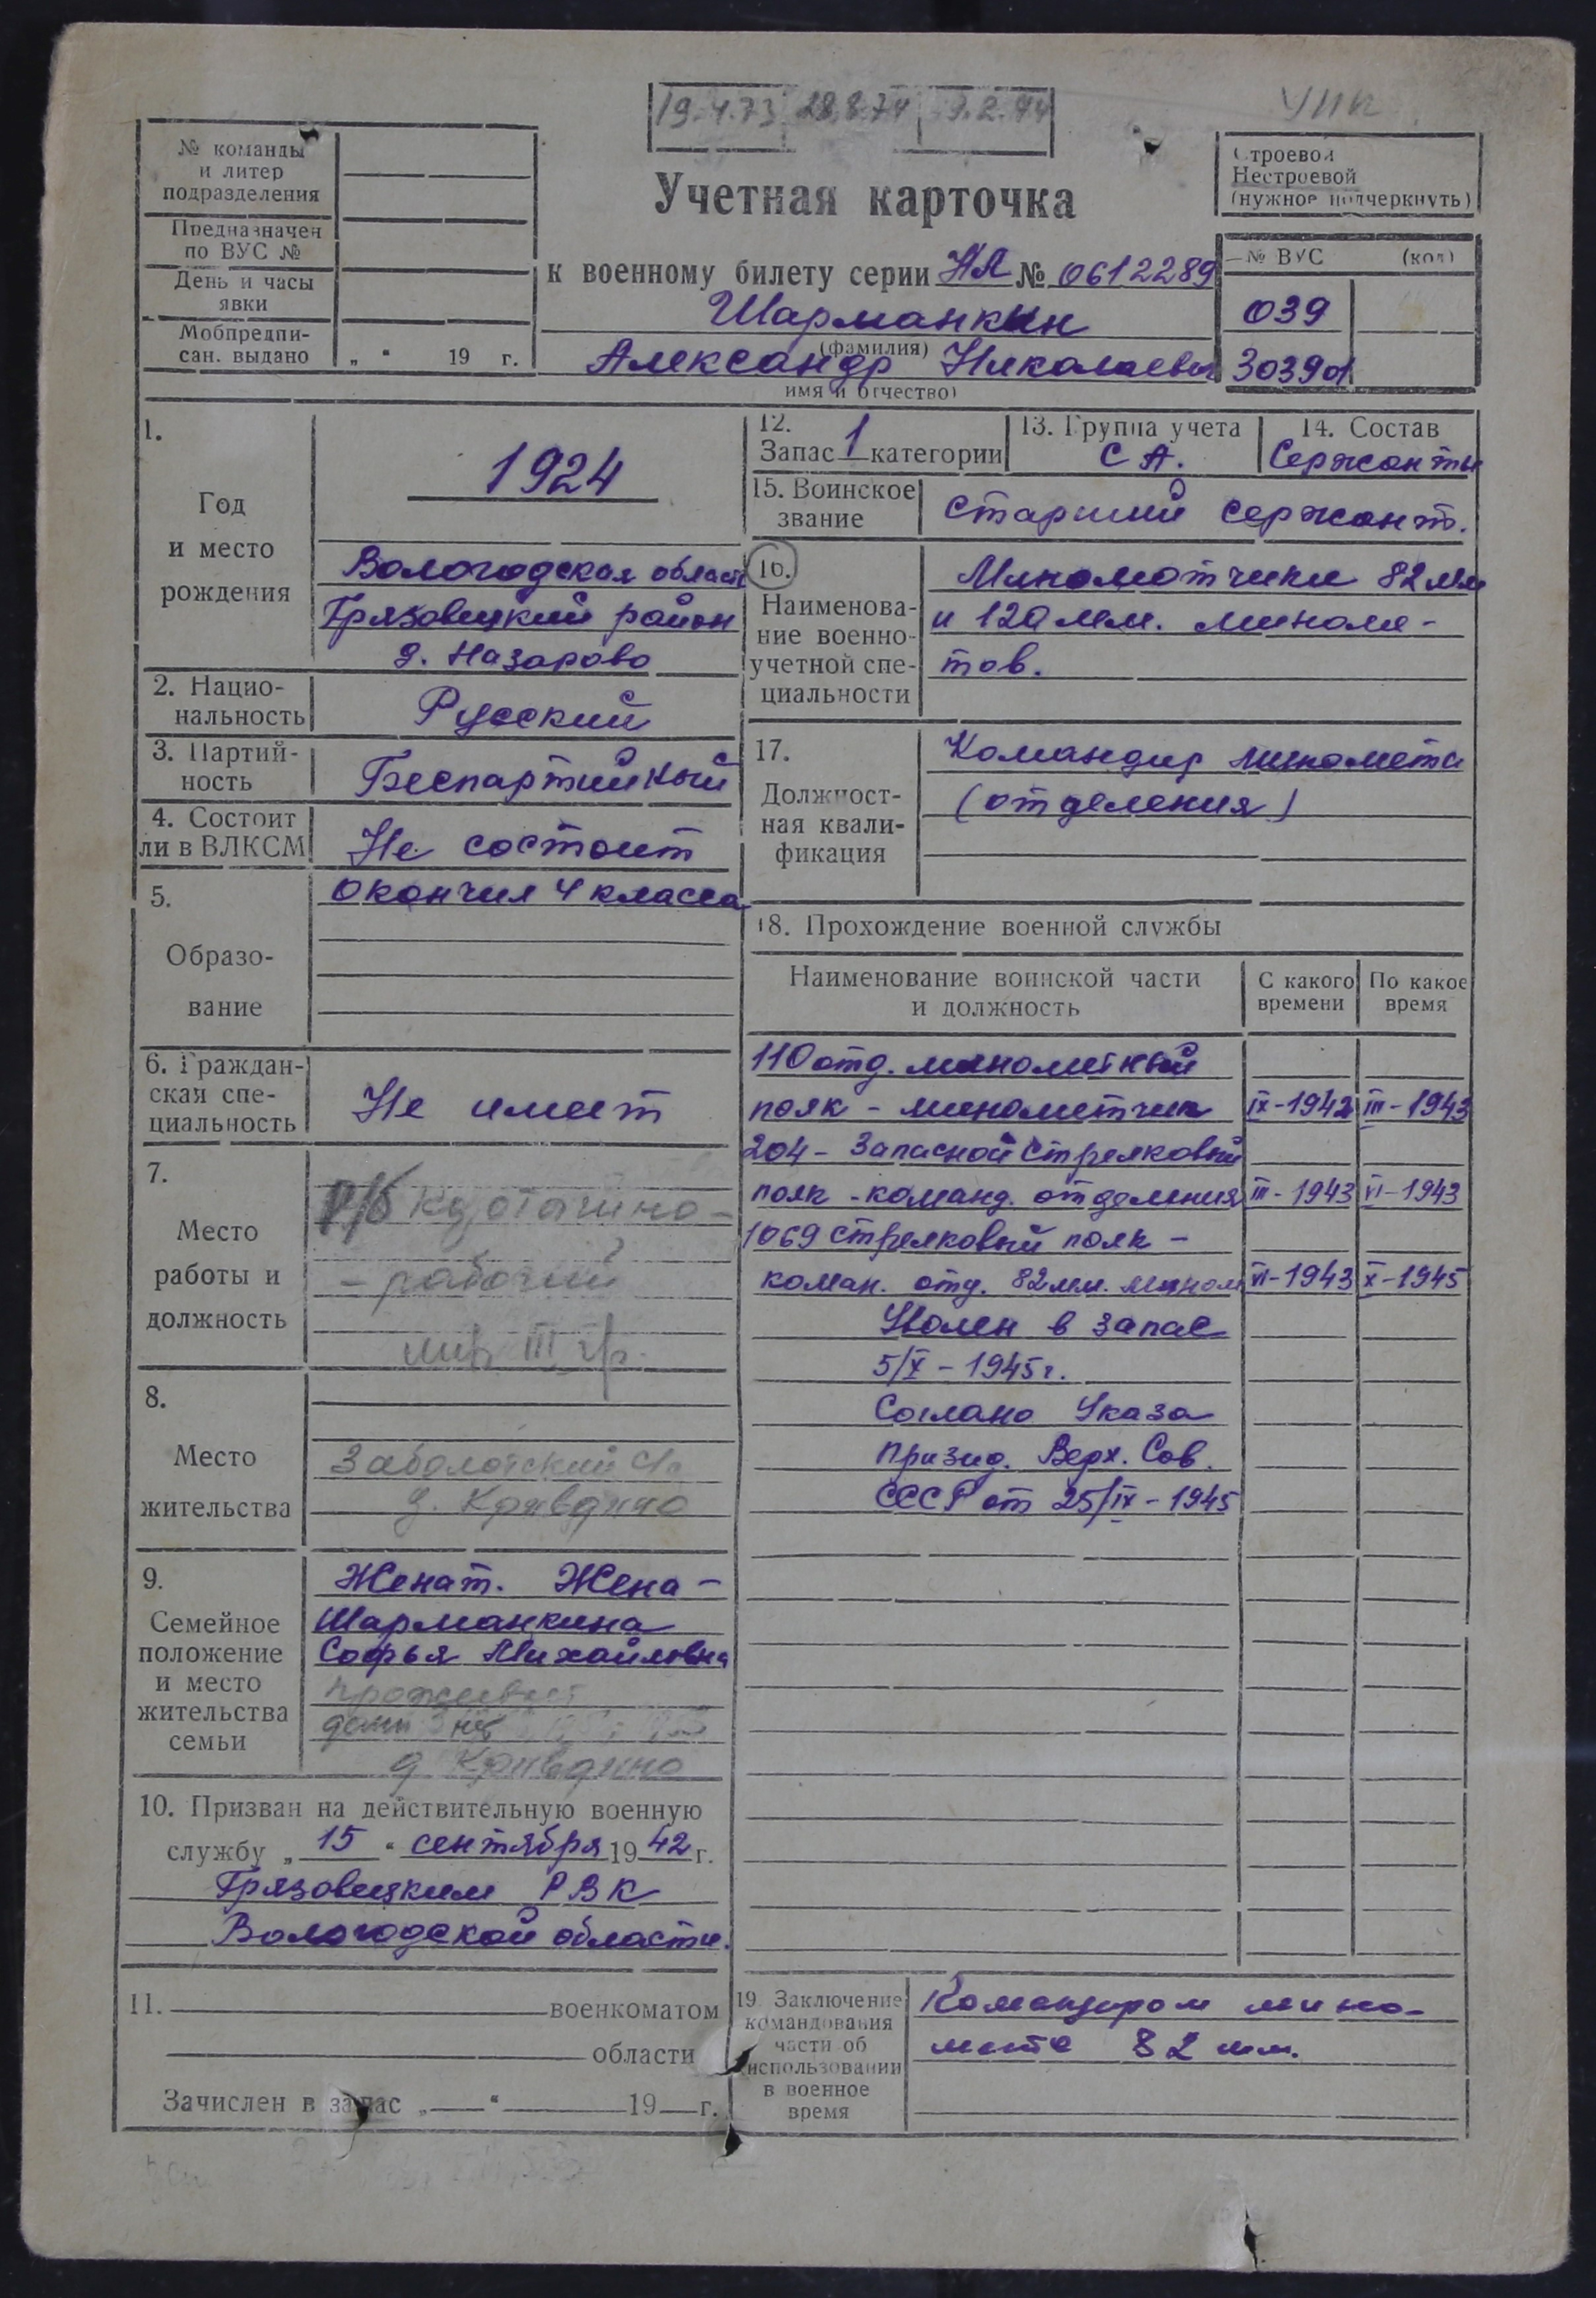 19.4.73 28.8.74
УПК
№ команды
и литер
подразделения
Предназначен
по ВУС №
День и часы
явки
Мобпредпи-
сан. выдано „ " 19 г.
Учетная карточка
к военному билету серии НЛ № 0612289
Шарманкин
(фамилия)
Александр Николаевич
имя и отчество)
Строевой
Нестроевой
(нужное подчеркнуть)
№ ВУС (код)
039
3039
1.
Год
и место
рождения
1924
Вологодская область
Грязовецкий район
д. Назарово
2. Нацио-
нальность
Русский
3. Партий-
ность
Беспартийный
4. Состоит
ли в ВЛКСМ
Не состоит
5.
Образо-
вание
Окончил 4 класса
6. Граждан-
ская спе-
циальность
Не имеет
7.
Место
работы и
должность
- рабочий
инв III гр.
8.
Место
жительства
Заболотский
д. Крив
9.
Семейное
положение
и место
жительства
семьи
Женат. Жена -
Шарманкина
Софья Михайловна
проживает
д Крив
10. Призван на действительную военную
службу „ 15 " сентября 1942 г.
Грязовецким РВК
Вологодской области.
11. военкоматом
области
Зачислен в запас „ " 19 г.
12.
Запас 1 категории
13. Группа учета
СА.
14. Состав
Сержанты
15. Воинское
звание
Старший сержант.
16.
Наименова-
ние военно-
учетной спе-
циальности
Минометчики 82 мм
и 120 мм. миноме-
тов.
17.
Должност-
ная квали-
фикация
Командир миномета
(отделения)
18. Прохождение военной службы
Наименование воинской части
и должность
С какого
времени
По какое
время
110 отд. минометный
полк - минометчик IX-1942 III-1943
204 - Запасной стрелковый
полк - команд. отделения III-1943 VI-1943
1069 стрелковый полк -
коман. отд. 82 мм. мином VI-1943 X-1945
Уволен в запас
5/X - 1945 г.
Соглано Указа
Призид. Верх. Сов.
СССР от 25/IX - 1945
19. Заключение
командования
части об
использовании
в военное
время
Командиром мино-
мета 82 мм.